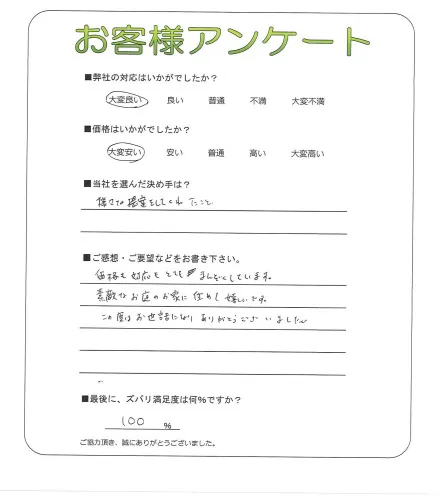 お客様アンケート
■弊社の対応はいかがでしたか？
大変良い 良い 普通 不満 大変不満
■価格はいかがでしたか？
大変安い 安い 普通 高い 大変高い
■当社を選んだ決め手は？
様々な提案をしてくれたこと
■ご感想・ご要望などをお書き下さい。
価格も対応もとてもまんぞくしています。
素敵なお庭のお家に住めて嬉しいです。
この度はお世話になりありがとうございました
■最後に、ズバリ満足度は何％ですか？
100 ％
ご協力頂き、誠にありがとうございました。